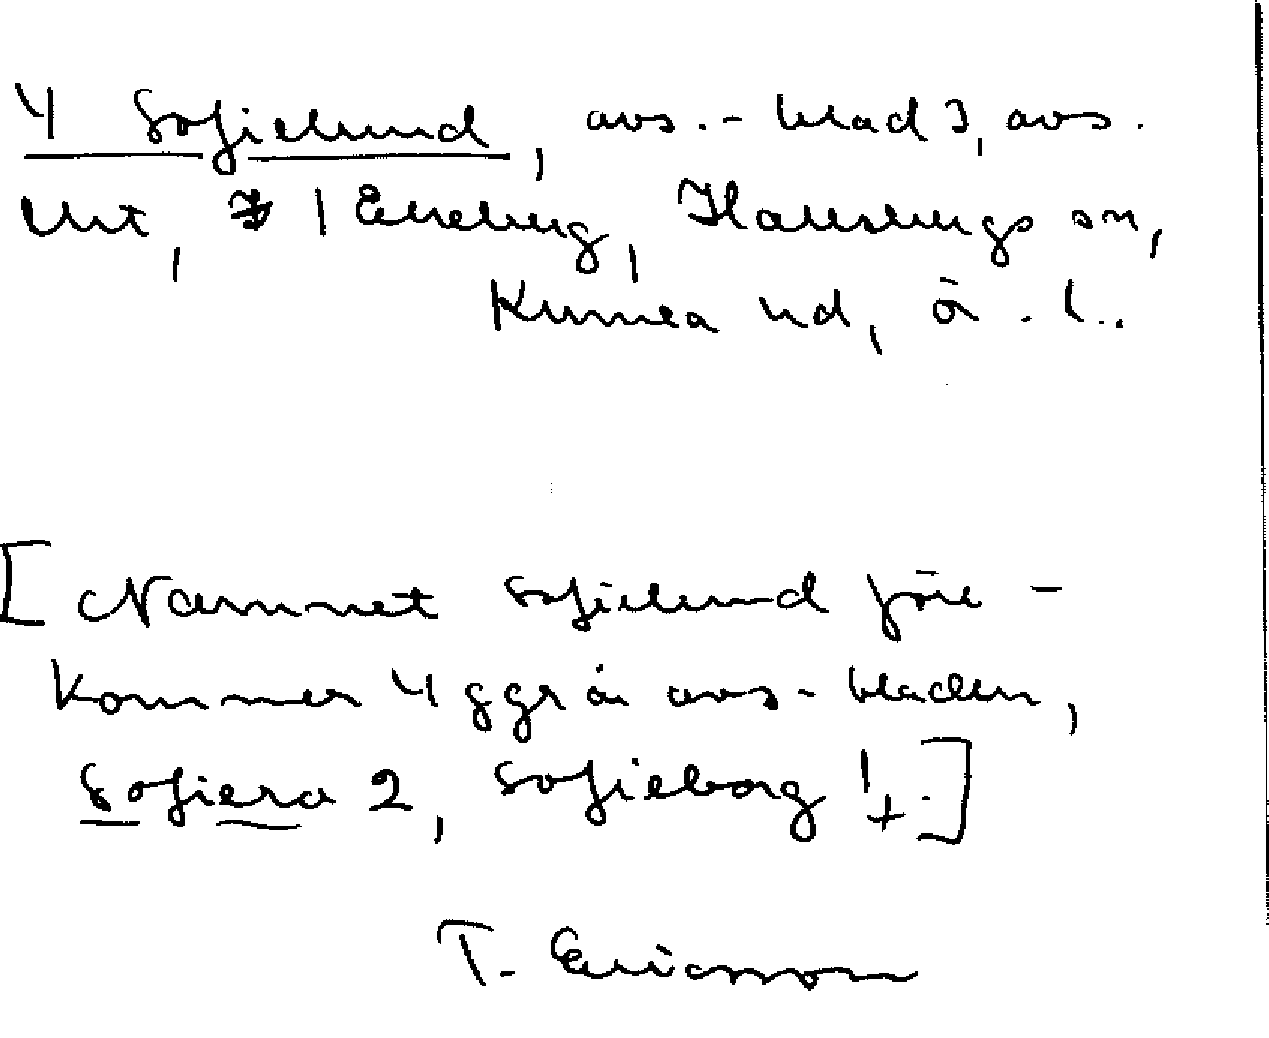 4 Sofielund, avs.- blad 3, avs.
utt, 1 Ekeberg, Hallsbergs sn,
Kumla hd, ö. l..
[Namnet Sofielund före-
kommer 4 ggr å avs-bladen,
Sofiero 2, Sofieborg 1.]
T. Ericsson